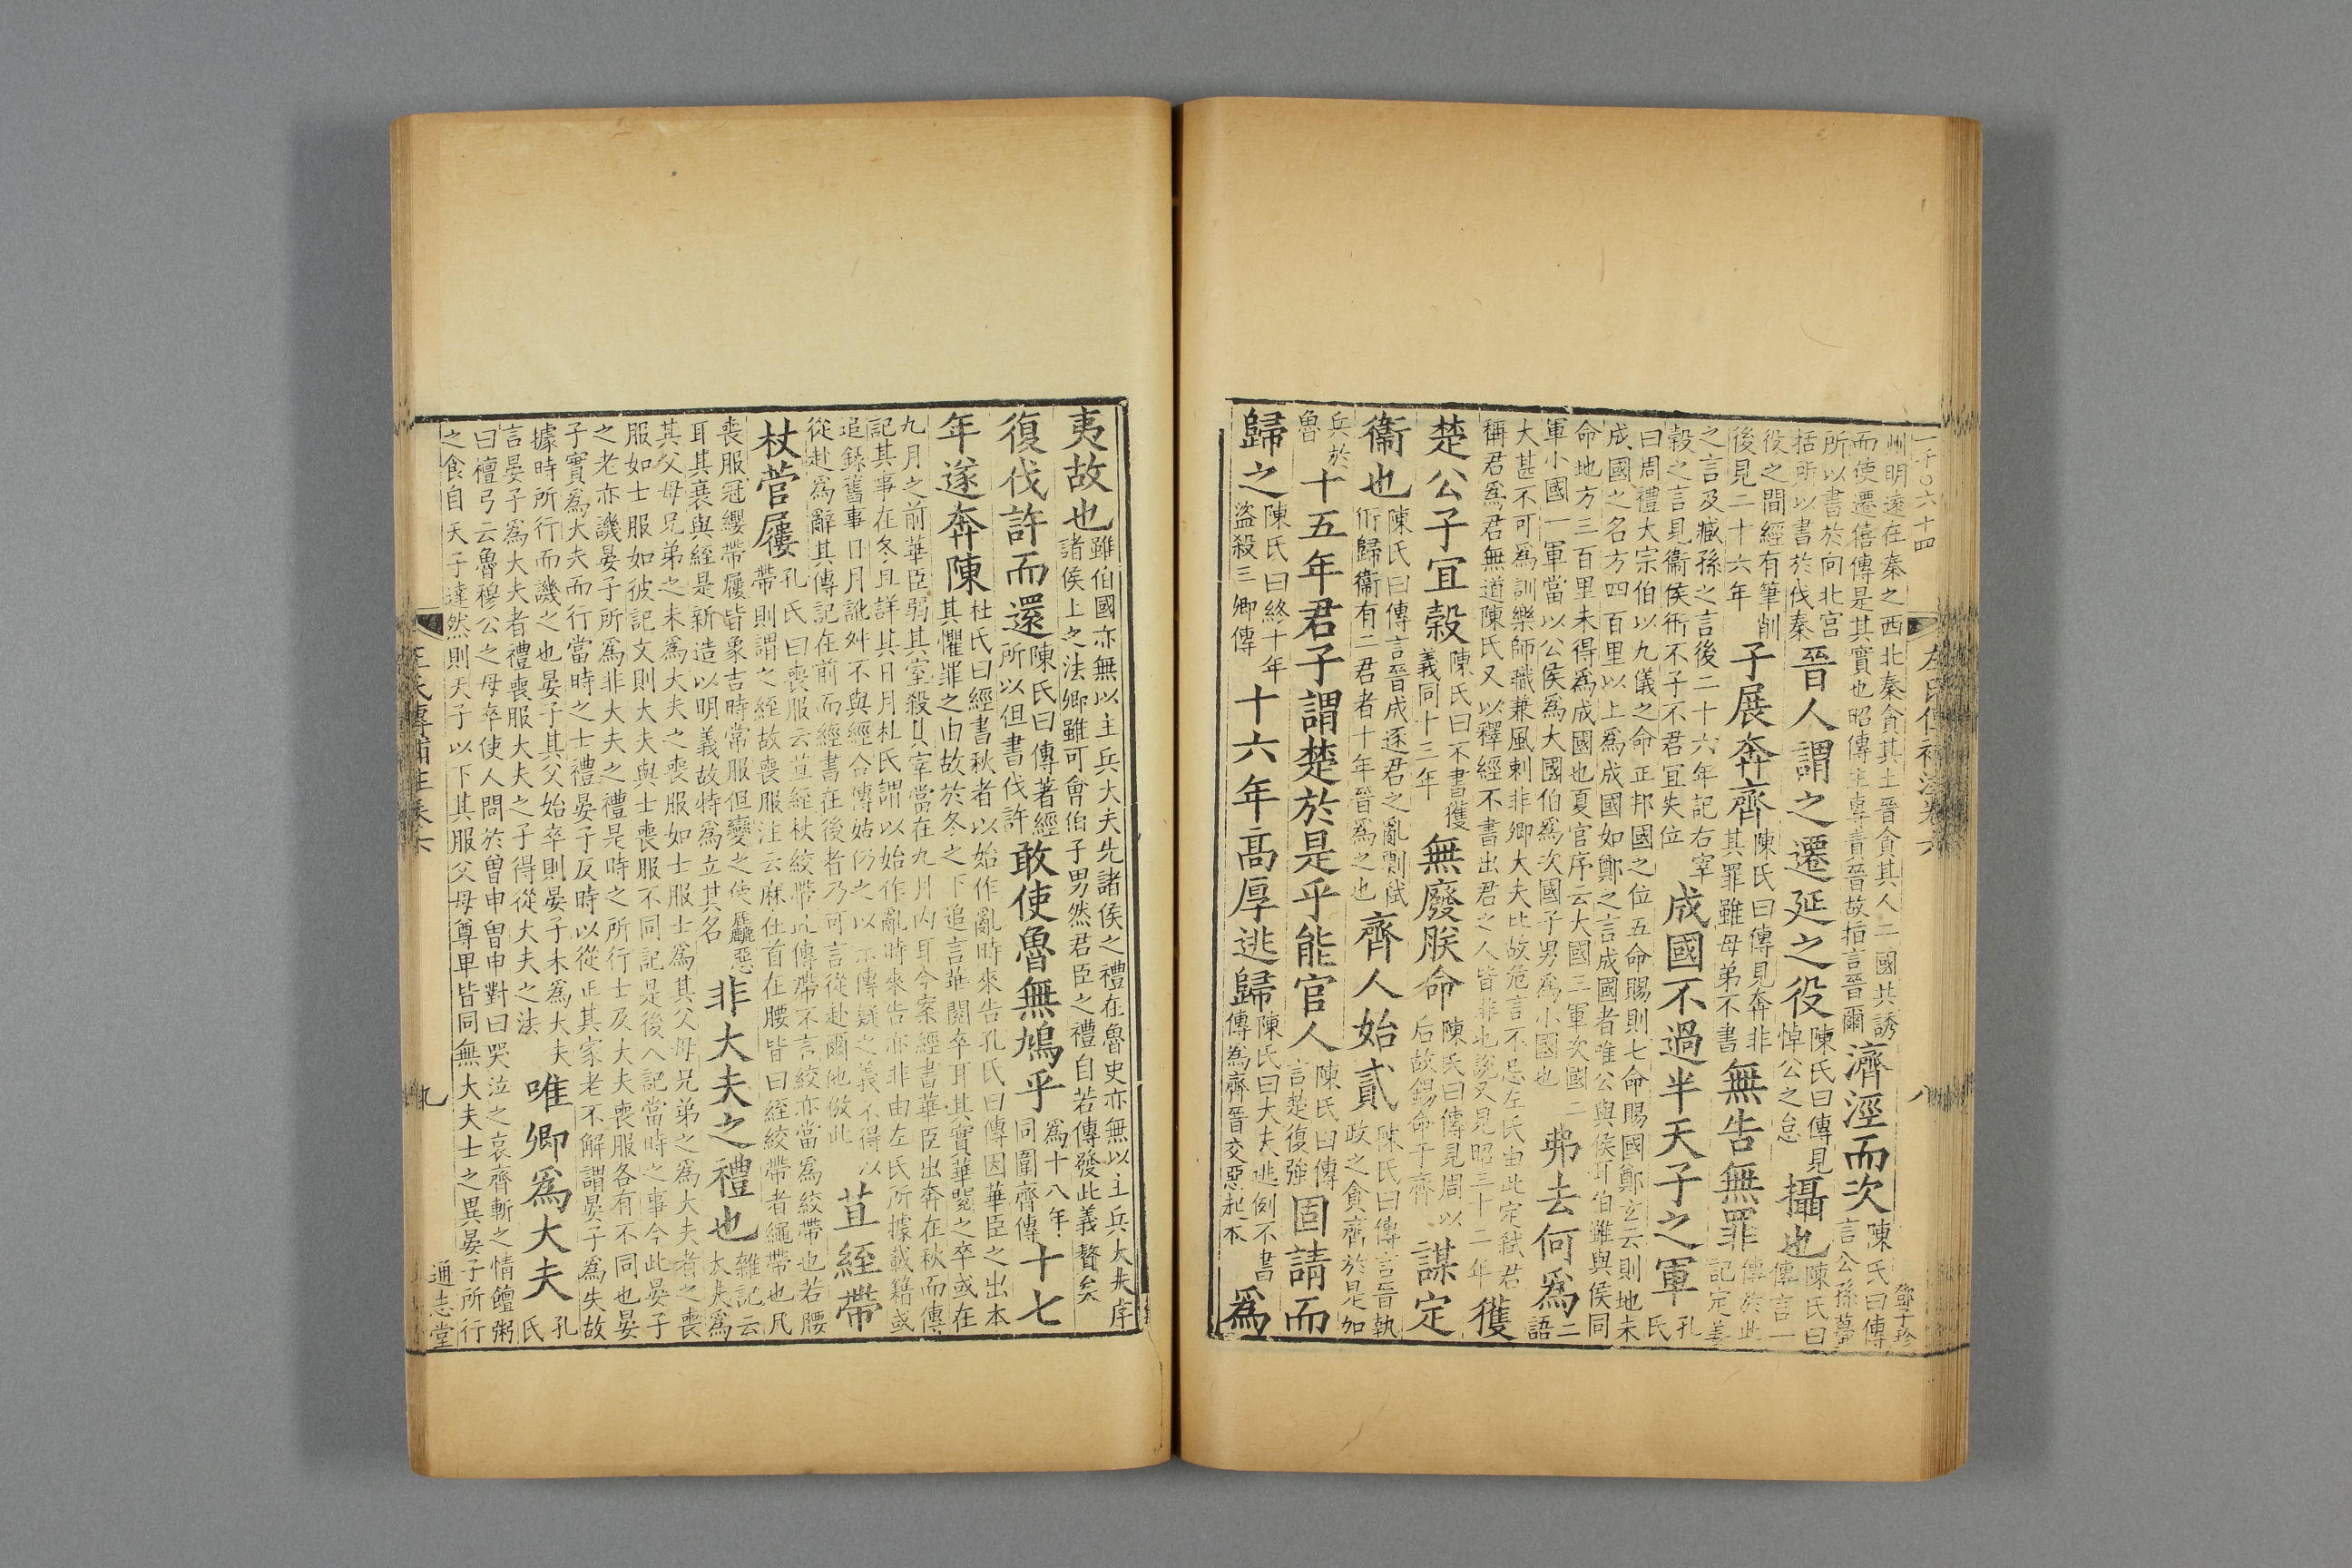 一千〇六十四
左氏傳補注卷六
八
州明遠在秦之西北秦貪其土晉貪其人二國共誘
而使遷僖傳是其實也昭傳主專責晉故指言晉爾
濟涇而次
陳氏曰傳
言公孫蠆
所以書於向北宮
括所以書於伐秦
晉人謂之遷延之役
陳氏曰傳見
悼公之怠
攝也
陳氏曰
傳言一
役之間經有筆削
後見二十六年
子展奔齊
陳氏曰傳見奔非
其罪雖母弟不書
無告無罪
傳於此
記定姜
之言及臧孫之言後二十六年記右宰
穀之言見衞侯衎不子不君宜失位
成國不過半天子之軍
孔
氏
曰周禮大宗伯以九儀之命正邦國之位五命賜則七命賜國鄭玄云則地未
成國之名方四百里以上為成國如鄭之言成國者唯公與侯耳伯雖與侯同
命地方三百里未得為成國也夏官序云大國三軍次國二
軍小國一軍當以公侯為大國伯為次國子男為小國也
弗去何爲
二
語
大甚不可爲訓樂師職兼風刺非卿大夫比故危言不忌左氏由此定弒君
稱君爲君無道陳氏又以釋經不書出君之人皆非也說又見昭三十二年
獲
楚公子宜穀
陳氏曰不書獲
義同十三年
無廢朕命
陳氏曰傳見周以
后故錫命于齊
謀定
衞也
陳氏曰傳言晉成逐君之亂剽弒
衎歸衞有二君者十年晉爲之也
齊人始貳
陳氏曰傳言晉執
政之貪齊於是加
兵於
魯
十五年君子謂楚於是乎能官人
陳氏曰傳
言楚復強
固請而
歸之
陳氏曰終十年
盜殺三卿傳
十六年高厚逃歸
陳氏曰大夫逃例不書
傳為齊晉交惡起本
爲
夷故也
雖伯國亦無以主兵大夫先諸侯之禮在魯史亦無以主兵大夫序
諸侯上之法卿雖可會伯子男然君臣之禮自若傳發此義贅矣
復伐許而還
陳氏曰傳著經
所以但書伐許
敢使魯無鳩乎
爲十八年
同圍齊傳
十七
年遂奔陳
杜氏曰經書秋者以始作亂時來告孔氏曰傳因華臣之出本
其懼罪之由故於冬之下追言華閱卒耳其實華閱之卒或在
九月之前華臣弱其室殺其宰當在九月內耳今案經書華臣出奔在秋而傳
記其事在冬且詳其日月杜氏謂以始作亂時來告亦非由左氏所據載籍或
追錄舊事日月訛舛不與經合傳姑仍之以示傳疑之義不得以
從赴爲辭其傳記在前而經書在後者乃可言從赴爾他倣此
苴絰帶
杖菅屨
孔氏曰喪服云苴絰杖絞帶此傳帶不言絞亦當爲絞帶也若腰
帶則謂之絰故喪服注云麻在首在腰皆曰絰絞帶者繩帶也凡
喪服冠纓帶屨皆象吉時常服但變之使麤惡
耳其衰與絰是新造以明義故特爲立其名
非大夫之禮也
雜記云
大夫爲
其父母兄弟之未爲大夫之喪服如士服士爲其父母兄弟之爲大夫者之喪
服如士服如彼記文則大夫與士喪服不同記是後人記當時之事今此晏子
之老亦譏晏子所爲非大夫之禮是時之所行士及大夫喪服各有不同也晏
子實爲大夫而行當時之士禮晏子反時以從正其家老不解謂晏子爲失故
據時所行而譏之也晏子其父始卒則晏子未爲大夫
言晏子爲大夫者禮喪服大夫之子得從大夫之法
唯卿爲大夫
孔
氏
曰檀弓云魯穆公之母卒使人問於曾申曾申對曰哭泣之哀齊斬之情饘粥
之食自天子達然則天子以下其服父母尊卑皆同無大夫士之異晏子所行
左氏傳補注卷六
九
通志堂